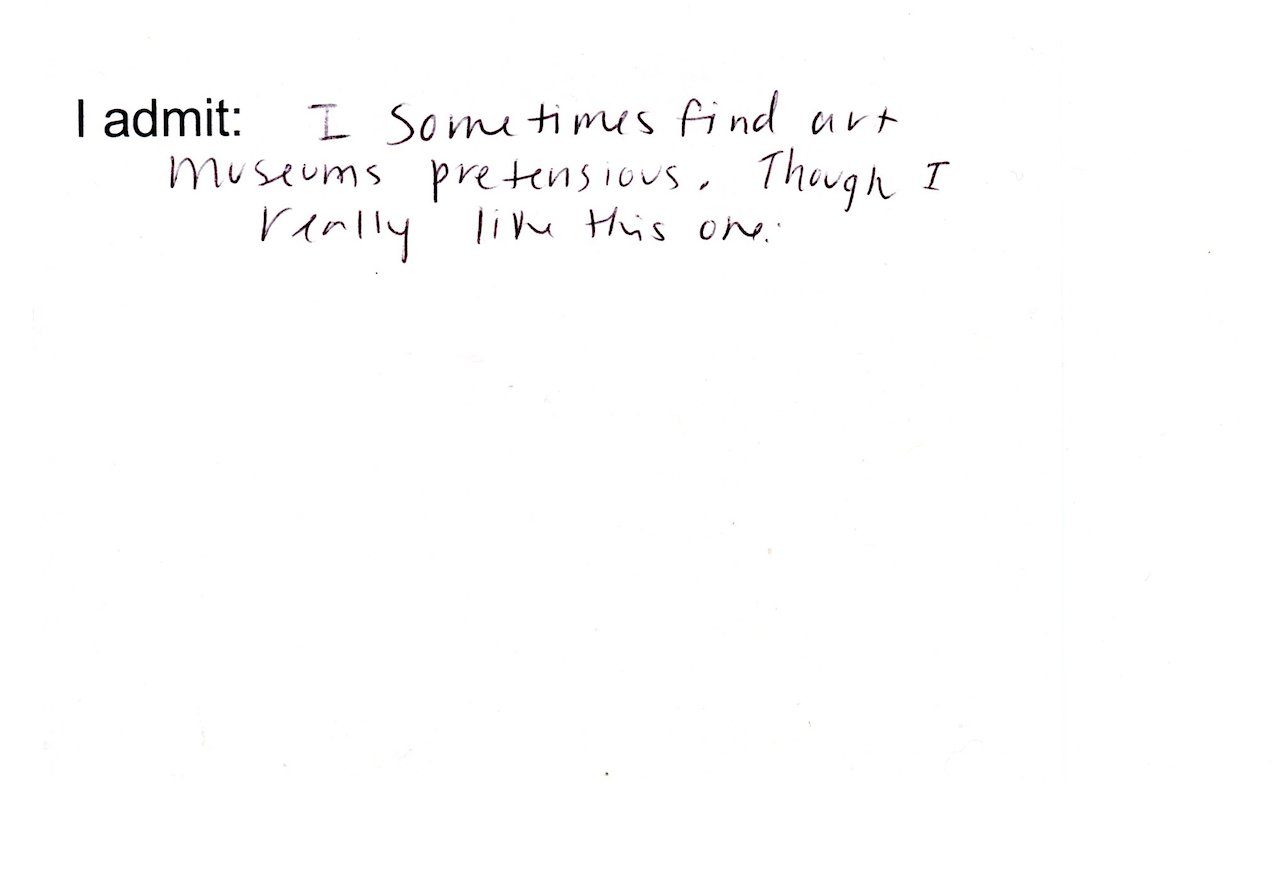 I admit: I sometimes find art
museums pretensious. Though I
really like this one.